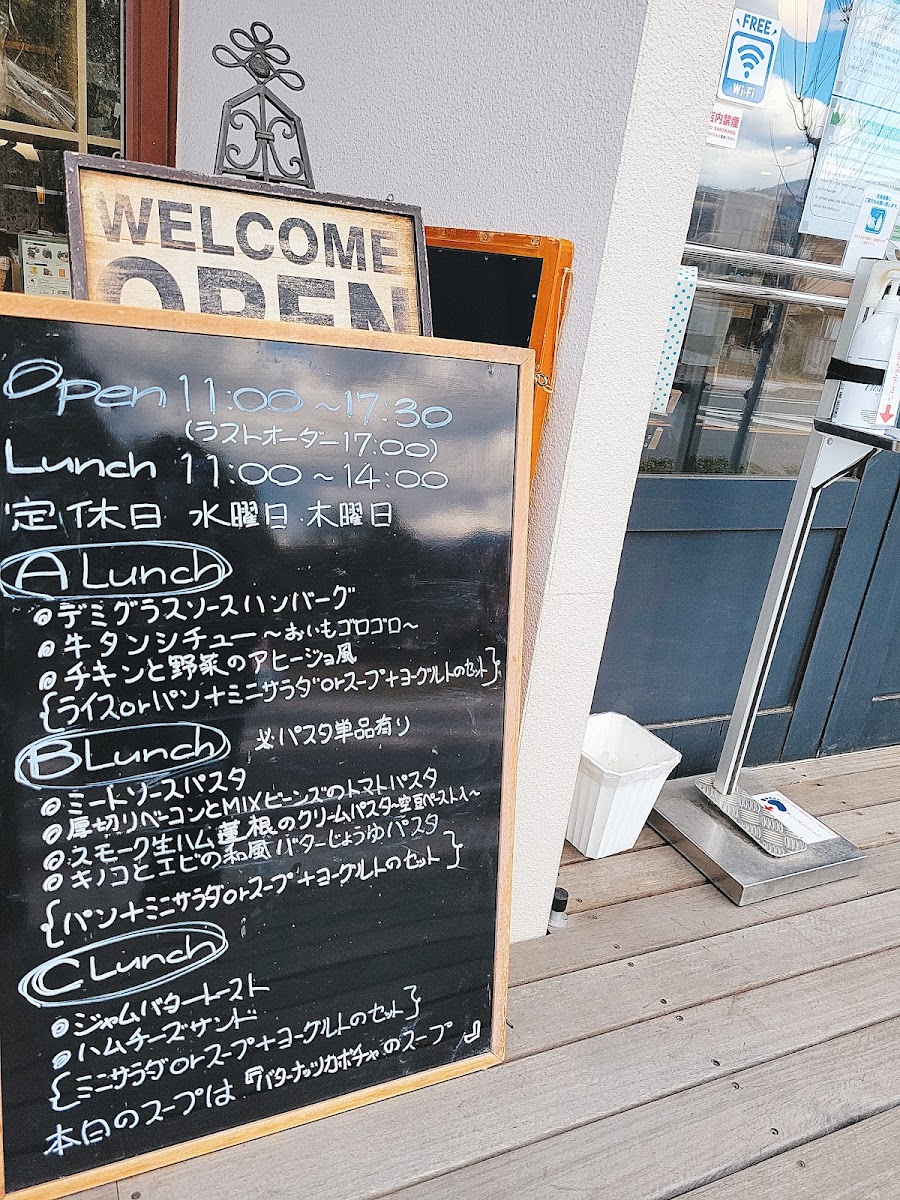 WELCOME
OPEN
Open 11:00〜17:30
(ラストオーダー17:00)
Lunch 11:00〜14:00
定休日 水曜日・木曜日
A Lunch
◎デミグラスソースハンバーグ
◎牛タンシチュー〜おいもゴロゴロ〜
◎チキンと野菜のアヒージョ風
{ライスorパン+ミニサラダorスープ+ヨーグルトのセット}
B Lunch ※パスタ単品有り
◎ミートソースパスタ
◎厚切りベーコンとMIXビーンズのトマトパスタ
◎スモーク生ハム蓮根のクリームパスタ〜空豆ペースト入〜
◎キノコとエビの和風バターじょうゆパスタ
{パン+ミニサラダorスープ+ヨーグルトのセット}
C Lunch
◎ジャムバタートースト
◎ハムチーズサンド
{ミニサラダorスープ+ヨーグルトのセット}
本日のスープは『バターナッツカボチャのスープ』
FREE
Wi-Fi
店内禁煙